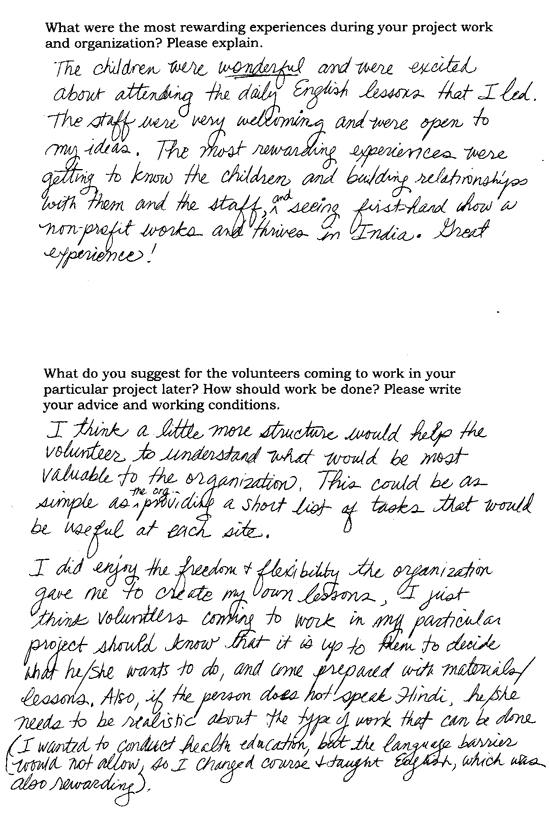 What were the most rewarding experiences during your project work
and organization? Please explain.
The children were wonderful and were excited
about attending the daily English lessons that I led.
The staff were very welcoming and were open to
my ideas. The most rewarding experiences were
getting to know the children and building relationships
with them and the staff, and seeing first-hand how a
non-profit works and thrives in India. Great
experience!
What do you suggest for the volunteers coming to work in your
particular project later? How should work be done? Please write
your advice and working conditions.
I think a little more structure would help the
volunteer to understand what would be most
valuable to the organization. This could be as
simple as the org. providing a short list of tasks that would
be useful at each site.
I did enjoy the freedom + flexibility the organization
gave me to create my own lessons, I just
think volunteers coming to work in my particular
project should know that it is up to them to decide
what he/she wants to do, and come prepared with materials/
lessons. Also, if the person does not speak Hindi, he/she
needs to be realistic about the type of work that can be done
(I wanted to conduct health education, but the language barrier
would not allow, so I changed course + taught English, which was
also rewarding).